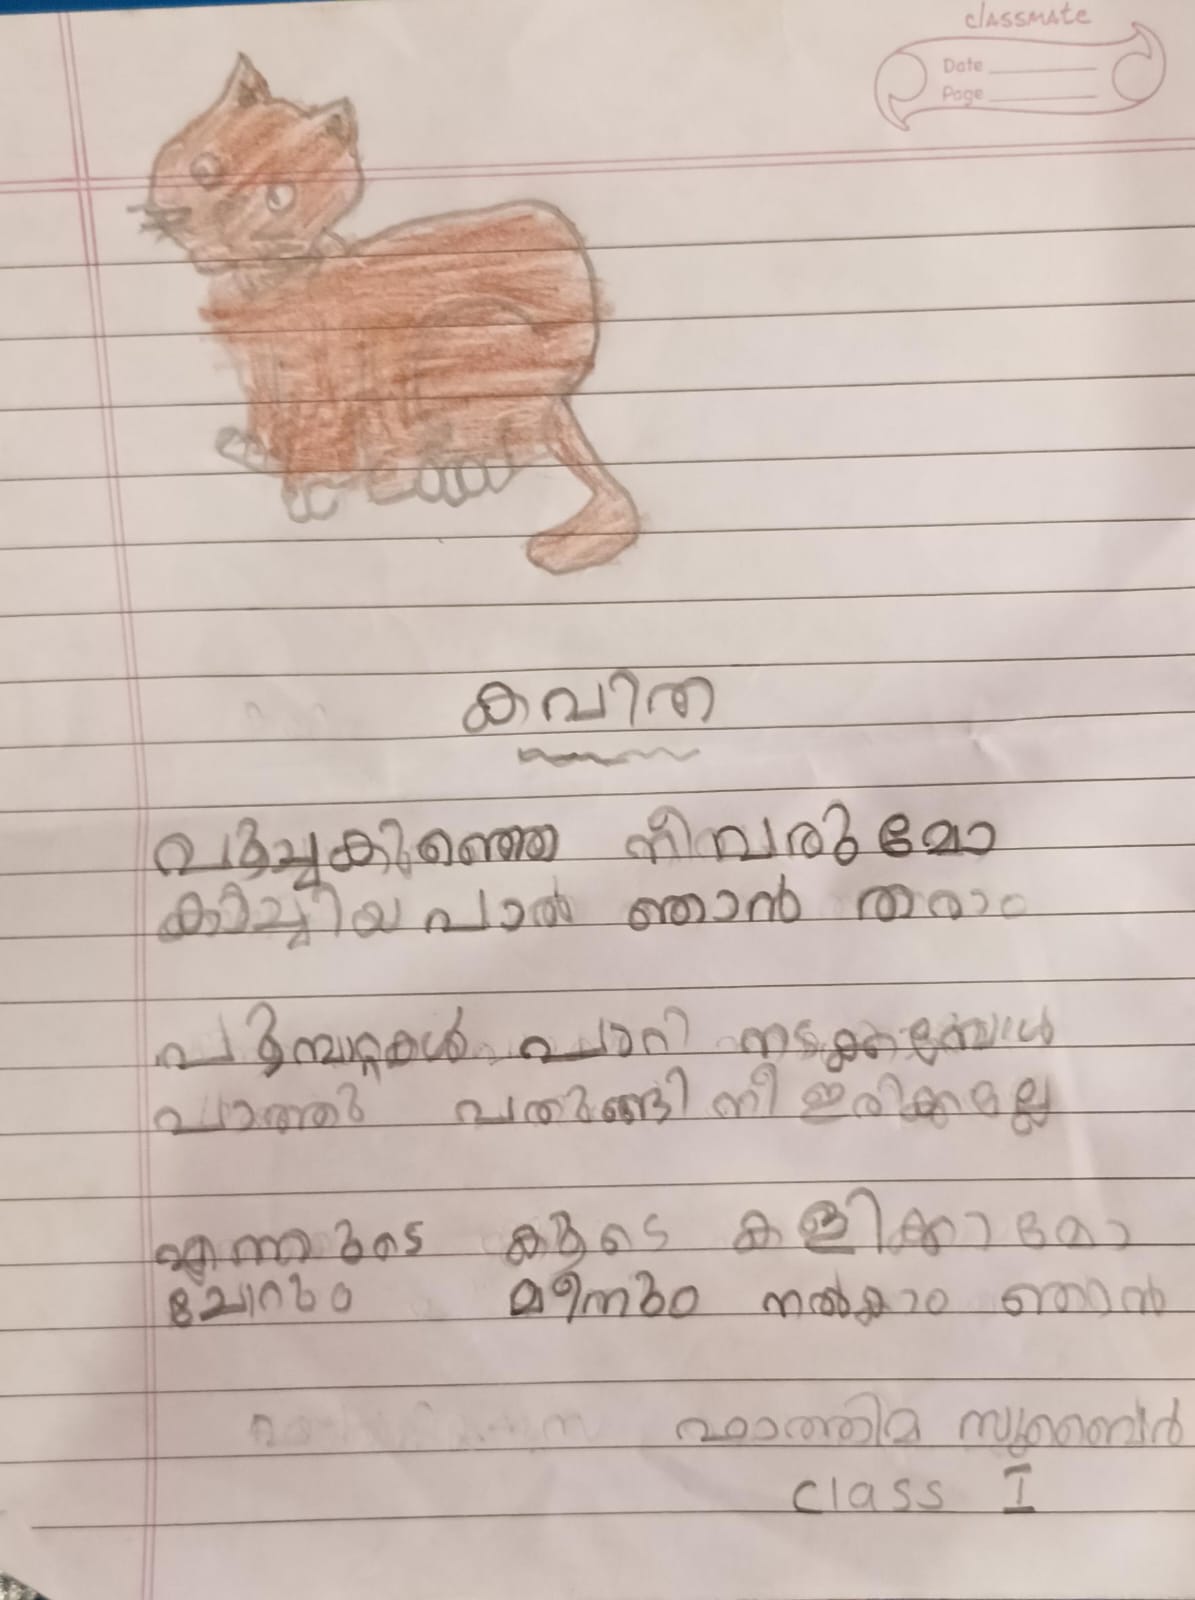 classmate
Date
Page
കവിത
പൂച്ചകുഞ്ഞെ നീ വരുമോ
കാച്ചിയ പാൽ ഞാൻ തരാം
പൂമ്പാറ്റകൾ പാറി നടക്കുമ്പോൾ
പാത്തു പതുങ്ങി നീ ഇരിക്കല്ലെ
എന്നുടെ കൂടെ കളിക്കാമോ
ചോറും മീനും നൽകാം ഞാൻ
ഫാത്തിമ സുബൈർ
class I